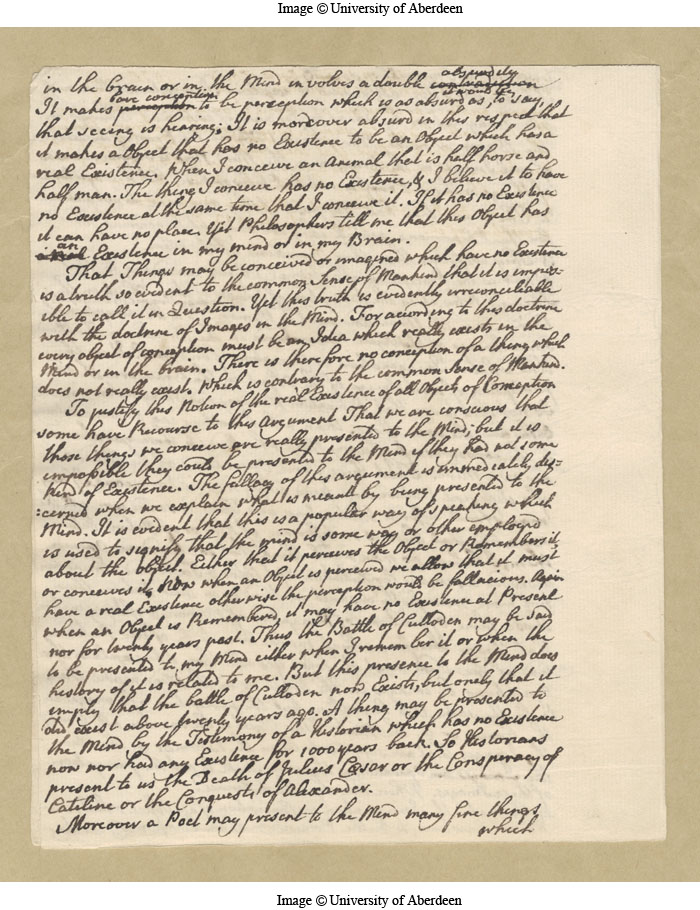 Image © University of Aberdeen
in the brain or in the Mind involves a double absurdity
It makes bare conception to be perception which is as absurd as, it would be, to say,
that seeing is hearing; It is moreover absurd in this respect that
it makes a Object that has no Existence to be an Object which has a
real Existence. When I conceive an animal that is half horse and
half man. The thing I conceive has no Existence, & I believe it to have
no Existence at the same time that I conceive it. If it has no Existence
it can have no place. Yet Philosophers tell me that this Object has
an Existence in my mind or in my Brain.
That Things may be conceived or imagined which have no Existence
is a truth so evident to the common Sense of Mankind that it is impos=
ible to call it in Question. Yet this truth is evidently irreconcileable
with the doctrine of Images in the Mind. For according to this doctrine
every object of conception must be an Idea which really exists in the
Mind or in the brain. There is therefore no conception of a thing which
does not really exist. Which is contrary to the common Sense of Mankind.
To justify this Notion of the real Existence of all Objects of Conception
some have Recourse to this Argument That we are conscious that
those things we conceive are really presented to the Mind; but it is
impossible they could be presented to the Mind if they had not some
kind of Existence. The fallacy of this argument is immediately dis=
:cerned when we explain what is meant by being presented to the
Mind. It is evident that this is a popular way of speaking which
is used to signify that the mind is some way or other employed
about the object. Either that it perceives the Object or Remembers it,
or conceives it, Now when an Object is perceived we allow that it must
have a real Existence otherwise the perception would be fallacious. Again
when an Object is Remembered, it may have no Existence at Present
nor for twenty years past. Thus the Battle of Culloden may be said
to be presented to my Mind either when I remember it or when the
history of it is related to me. But this presence to the Mind does
imply that the battle of Culloden now Exists, but onely that it
did exist above twenty years ago. A thing may be presented to
the Mind by the Testimony of a Historian which has no Existence
now nor had any Existence for 1000 years back. So Historians
present to us the Death of Julius Cæsar or the Conspiracy of
Cataline or the Conquests of Alexander.
Moreover a Poet may present to the Mind many fine things
which
Image © University of Aberdeen